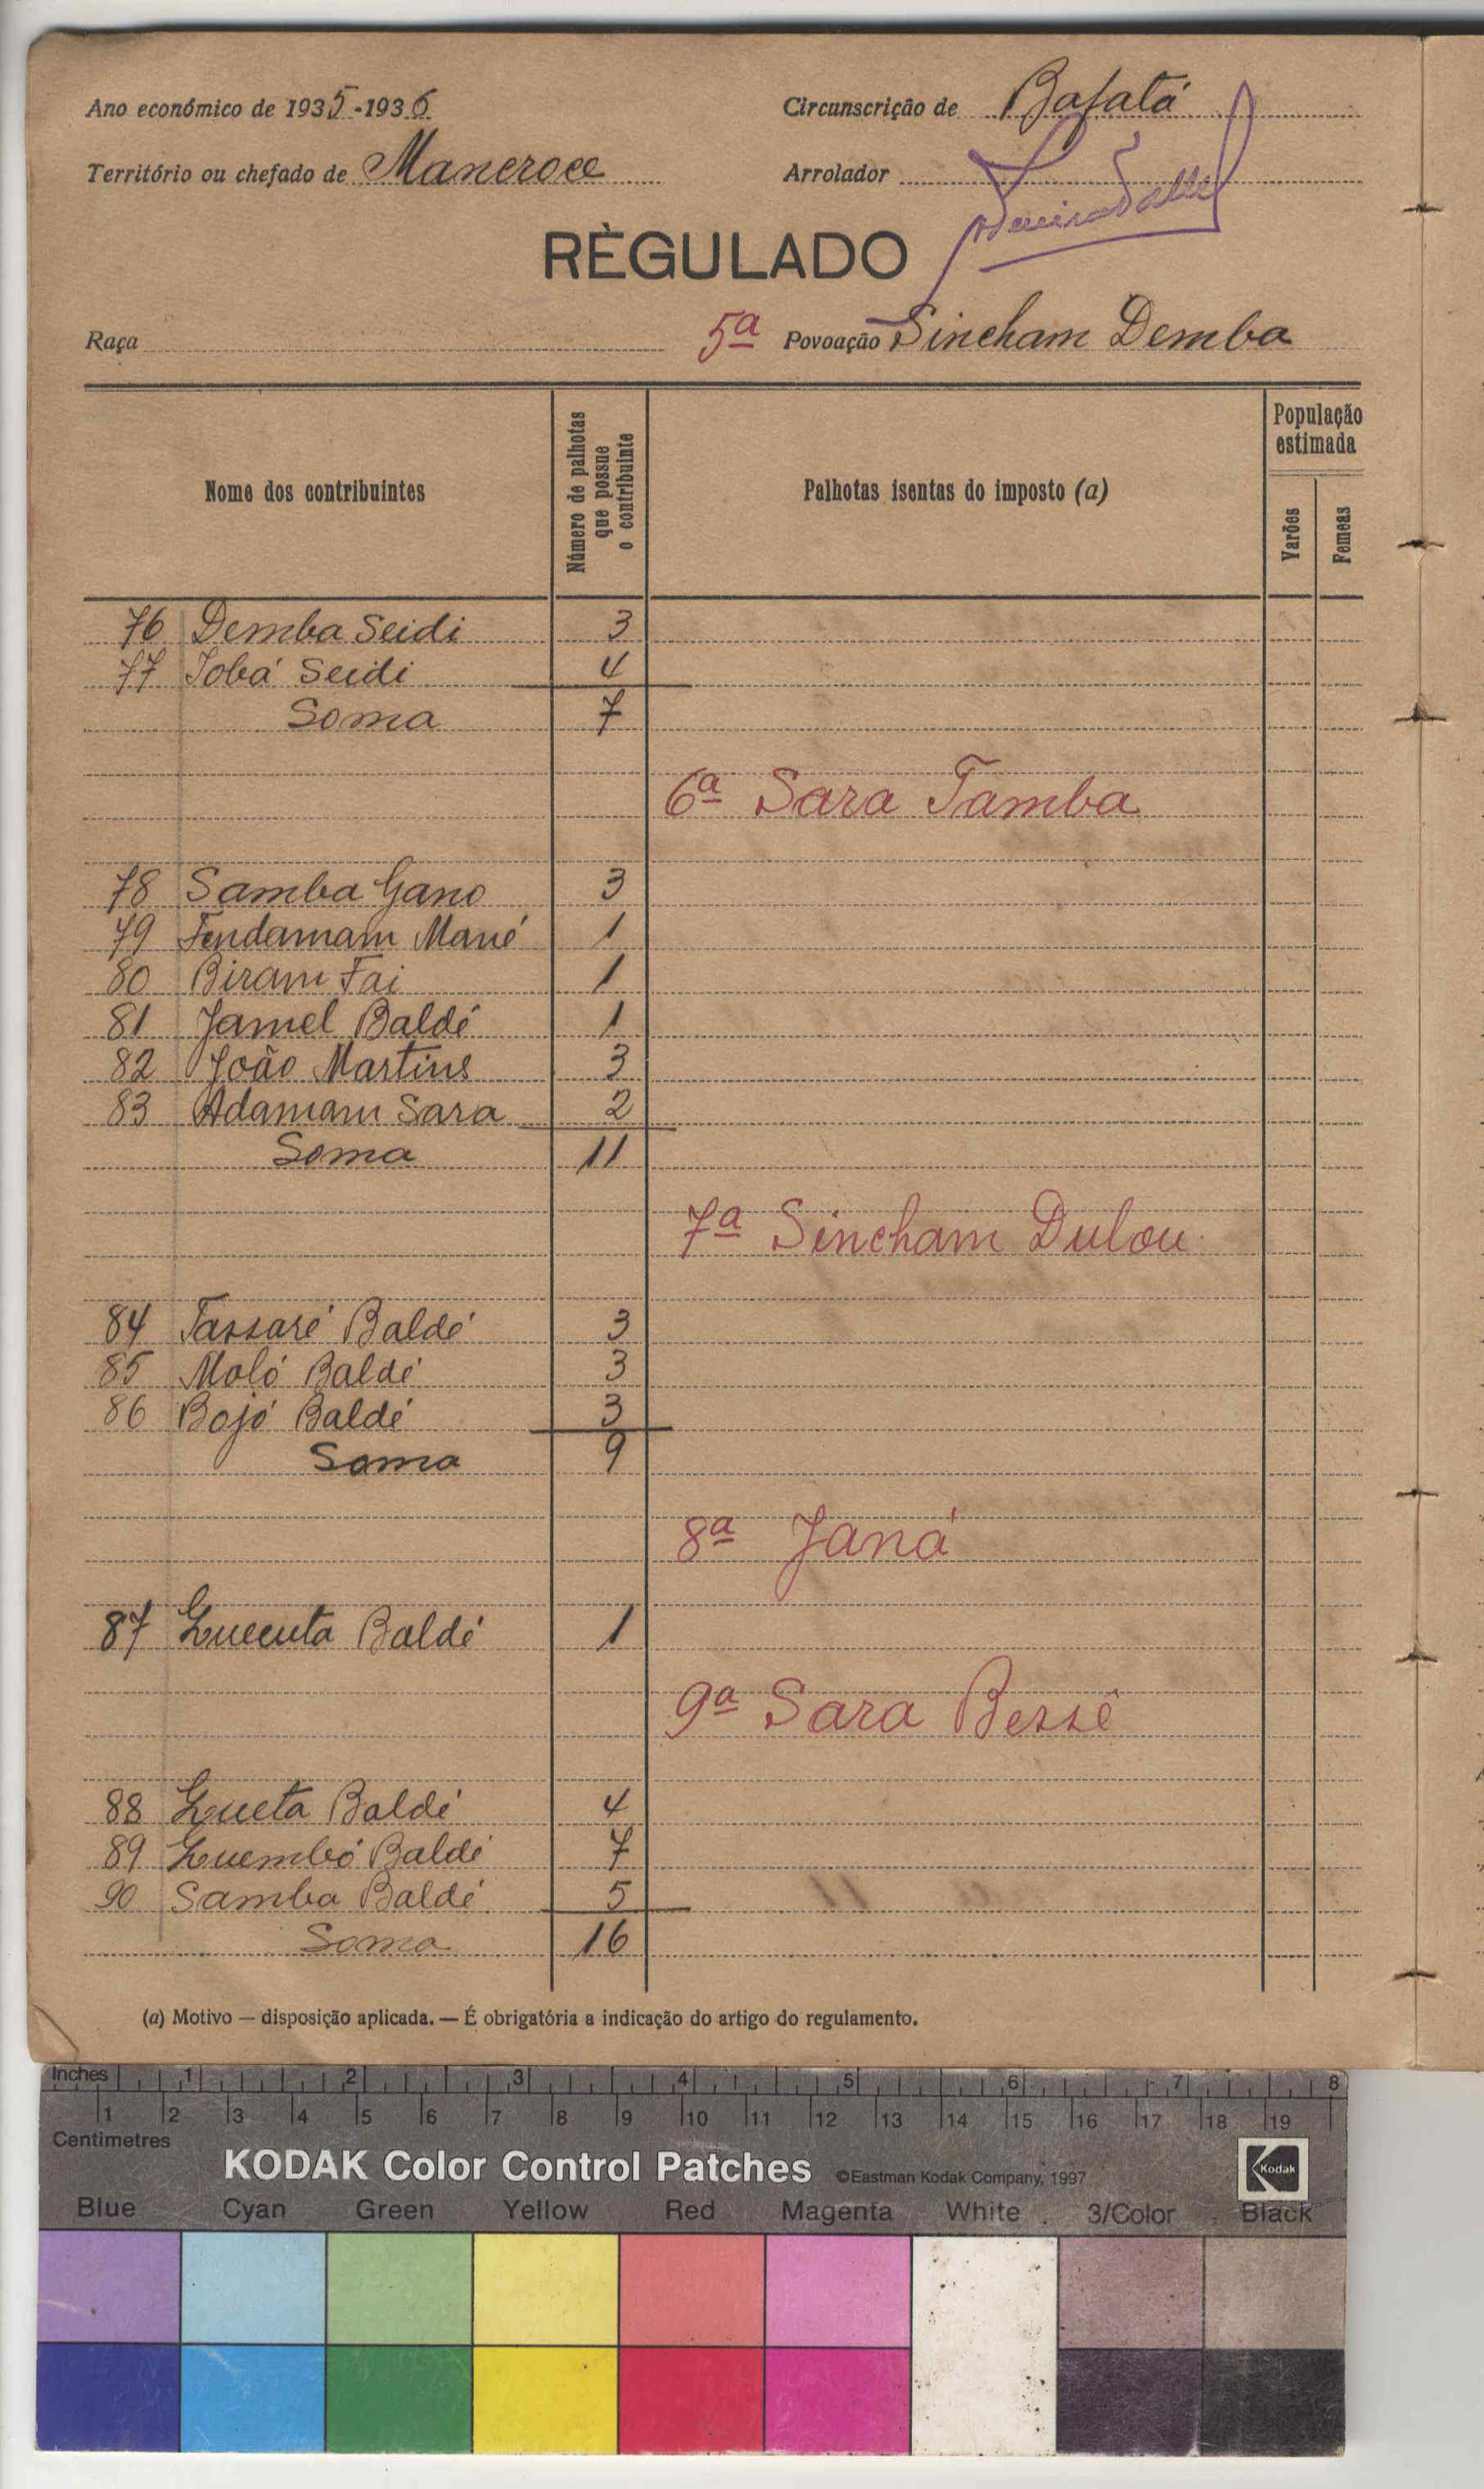 Ano económico de 1935-1936
Circunscrição de Bafatá
Território ou chefado de Mancroce
Arrolador
RÈGULADO
Raça
5ª Povoação Sincham Demba
Nome dos contribuintes
Número de palhotas que possue o contribuinte
Palhotas isentas do imposto (a)
População estimada
Varões
Femeas
76 Demba Seidi 3
77 Jobá Seidi 4
Soma 7
6ª Sara Tamba
78 Samba Gano 3
79 Fendamam Mané 1
80 Biram Fai 1
81 Jamel Baldé 1
82 João Martins 3
83 Adamam Sara 2
Soma 11
7ª Sincham Dulou
84 Tassaré Baldé 3
85 Moló Baldé 3
86 Bojó Baldé 3
Soma 9
8ª Janá
87 Quecuta Baldé 1
9ª Sara Bessê
88 Queta Baldé 4
89 Quembó Baldé 7
90 Samba Baldé 5
Soma 16
(a) Motivo — disposição aplicada. — É obrigatória a indicação do artigo do regulamento.
Inches 1 2 3 4 5 6 7 8
1 2 3 4 5 6 7 8 9 10 11 12 13 14 15 16 17 18 19
Centimetres
KODAK Color Control Patches ©Eastman Kodak Company, 1997 Kodak
Blue Cyan Green Yellow Red Magenta White 3/Color Black